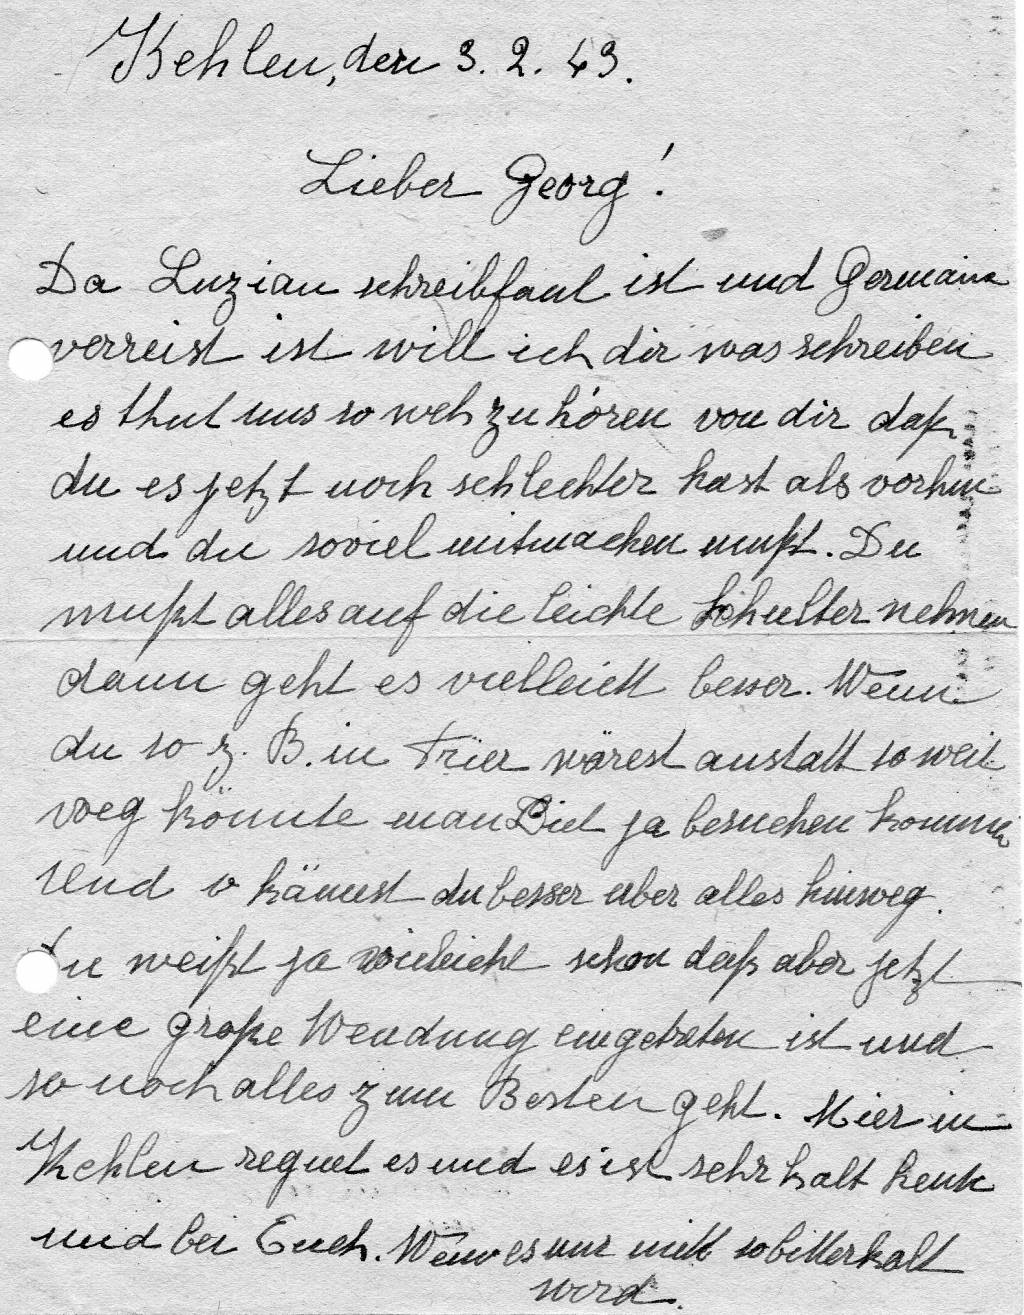 Kehlen, den 3. 2. 43.
Lieber Georg!
Da Luzian schreibfaul ist und Germaine
verreist ist will ich dir was schreiben
es thut uns so weh zu hören von dir daß
du es jetzt noch schlechter hast als vorhin
und du soviel mitmachen mußt. Du
mußt alles auf die leichte Schulter nehmen
dann geht es vielleicht besser. Wenn
du so z. B. in Trier wärest anstatt so weit
weg könnte man Dich ja besuchen kommen
Und so kämest du besser über alles hinweg.
Du weißt ja vieleicht schon daß aber jetzt
eine große Wendung eingetreten ist und
so noch alles zum Besten geht. Hier in
Kehlen regnet es und es ist sehr kalt heute
und bei Euch. Wenn es nur nicht so bitterkalt
wird.